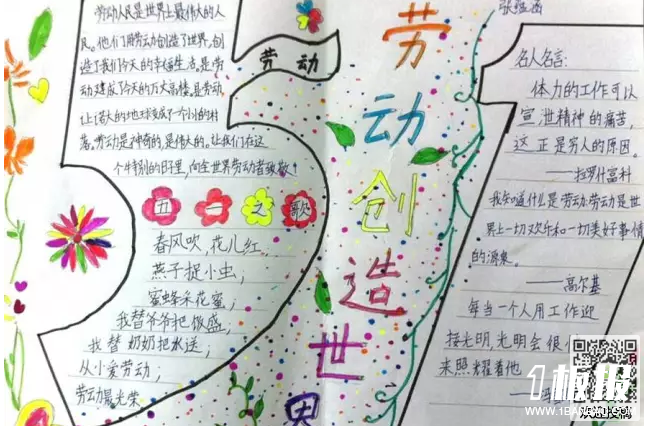 劳动人民是世界上最伟大的人
民。他们用劳动创造了世界,创
造了我们今天的幸福生活,是劳
动建成了今天的万丈高楼,是劳动
让诺大的地球变成了一个小的村
落。劳动是神奇的,是伟大的。让我们在这
个特别的日子里,向全世界劳动者致敬!
五一之歌
春风吹,花儿红,
燕子捉小虫;
蜜蜂采花蜜;
我替爷爷把饭盛,
我替奶奶把水送;
从小爱劳动;
劳动最光荣
劳动
劳动创造世界
名人名言:
体力的工作可以
宣泄精神的痛苦,
这正是穷人的原因。
——拉罗什富科
我知道什么是劳动:劳动是世
界上一切欢乐和一切美好事情
的源泉。
——高尔基
每当一个人用工作迎
接光明,光明会很
来照耀着他
1板报
WWW.1BANBAO.COM